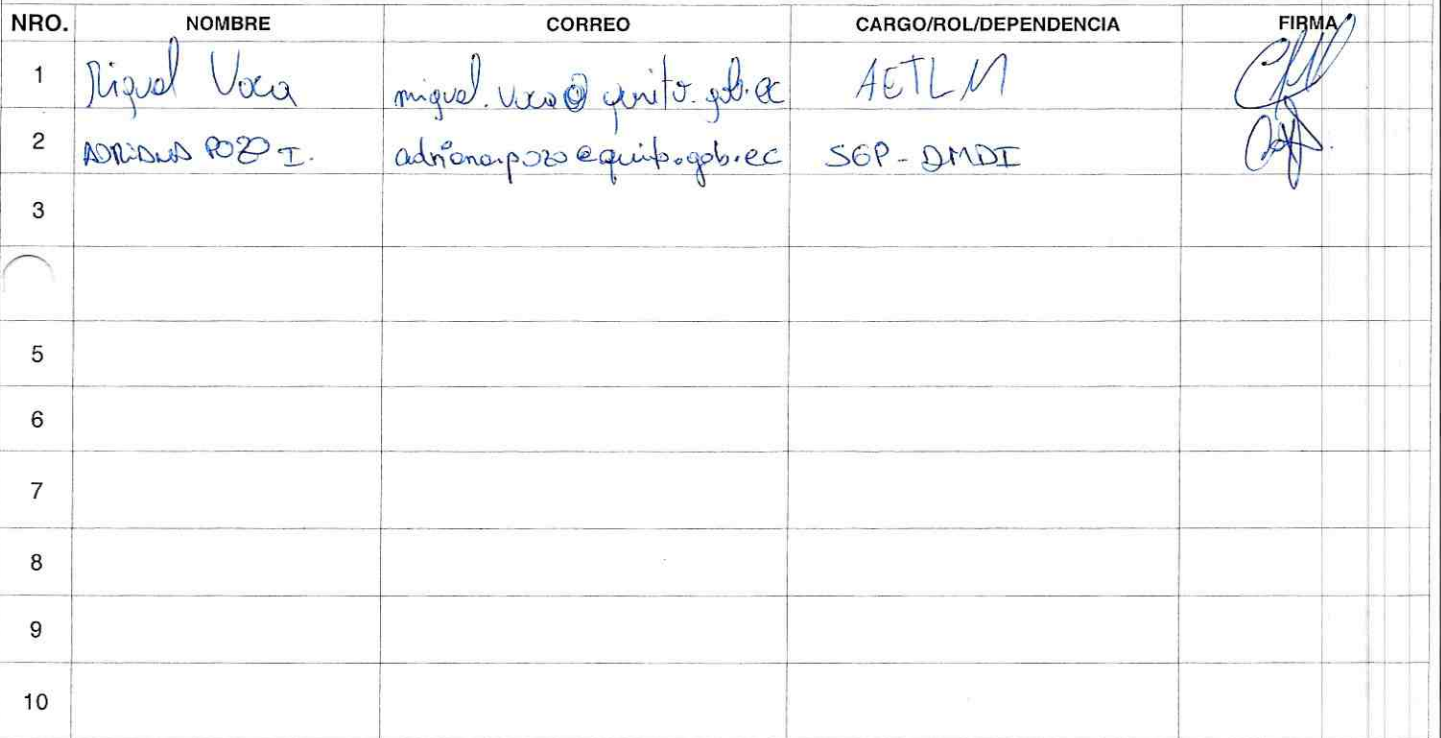 NRO. NOMBRE CORREO CARGO/ROL/DEPENDENCIA FIRMA
1 Miguel Vaca miguel.vaca@quito.gob.ec AETLM
2 ADRIANA POZO I. adriana.pozo@quito.gob.ec SGP-DMDI
3
5
6
7
8
9
10